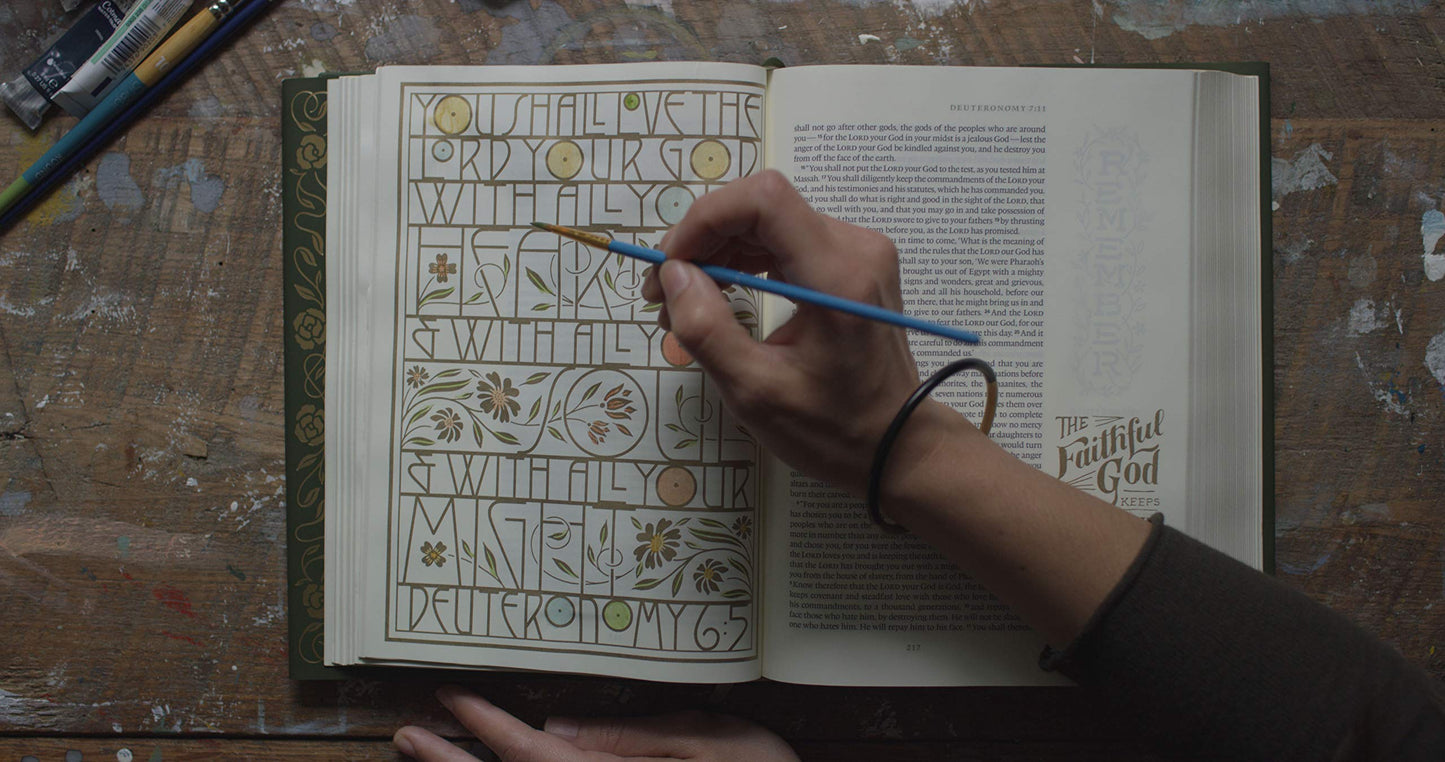 YOU SHALL LOVE THE
LORD YOUR GOD
WITH ALL YOU
HEAR
& WITH ALL YO
SOUL
& WITH ALL YOUR
MIGHT
DEUTERONOMY 6:5
DEUTERONOMY 7:11
shall not go after other gods, the gods of the peoples who are around
you—¹⁵for the LORD your God in your midst is a jealous God—lest the
anger of the LORD your God be kindled against you, and he destroy you
from off the face of the earth.
¹⁶"You shall not put the LORD your God to the test, as you tested him at
Massah. ¹⁷You shall diligently keep the commandments of the LORD your
God, and his testimonies and his statutes, which he has commanded you.
And you shall do what is right and good in the sight of the LORD, that
go well with you, and that you may go in and take possession of
that the LORD swore to give to your fathers ¹⁹by thrusting
from before you, as the LORD has promised.
in time to come, 'What is the meaning of
and the rules that the LORD our God has
shall say to your son, 'We were Pharaoh's
brought us out of Egypt with a mighty
signs and wonders, great and grievous,
and all his household, before our
from there, that he might bring us in and
to give to our fathers. ²⁴And the LORD
to fear the LORD our God, for our
are this day. ²⁵And it
are careful to do all this commandment
commanded us.'
you and that you are
nations before
the
seven nations numerous
your God gives them over
them to complete
show no mercy
daughters to
would turn
the anger
altars and
burn their carved
⁶"For you are a people
has chosen you to be a
peoples who are on the
more in number than any other people
and chose you, for you were the fewest
the LORD loves you and is keeping the oath
that the LORD has brought you out with a mighty
you from the house of slavery, from the hand of
⁹Know therefore that the LORD your God is God, the
keeps covenant and steadfast love with those who love him
his commandments, to a thousand generations, ¹⁰and
face those who hate him, by destroying them. He will not be slack
one who hates him. He will repay him to his face. ¹¹You shall
217
REMEMBER
THE
Faithful
God
KEEPS